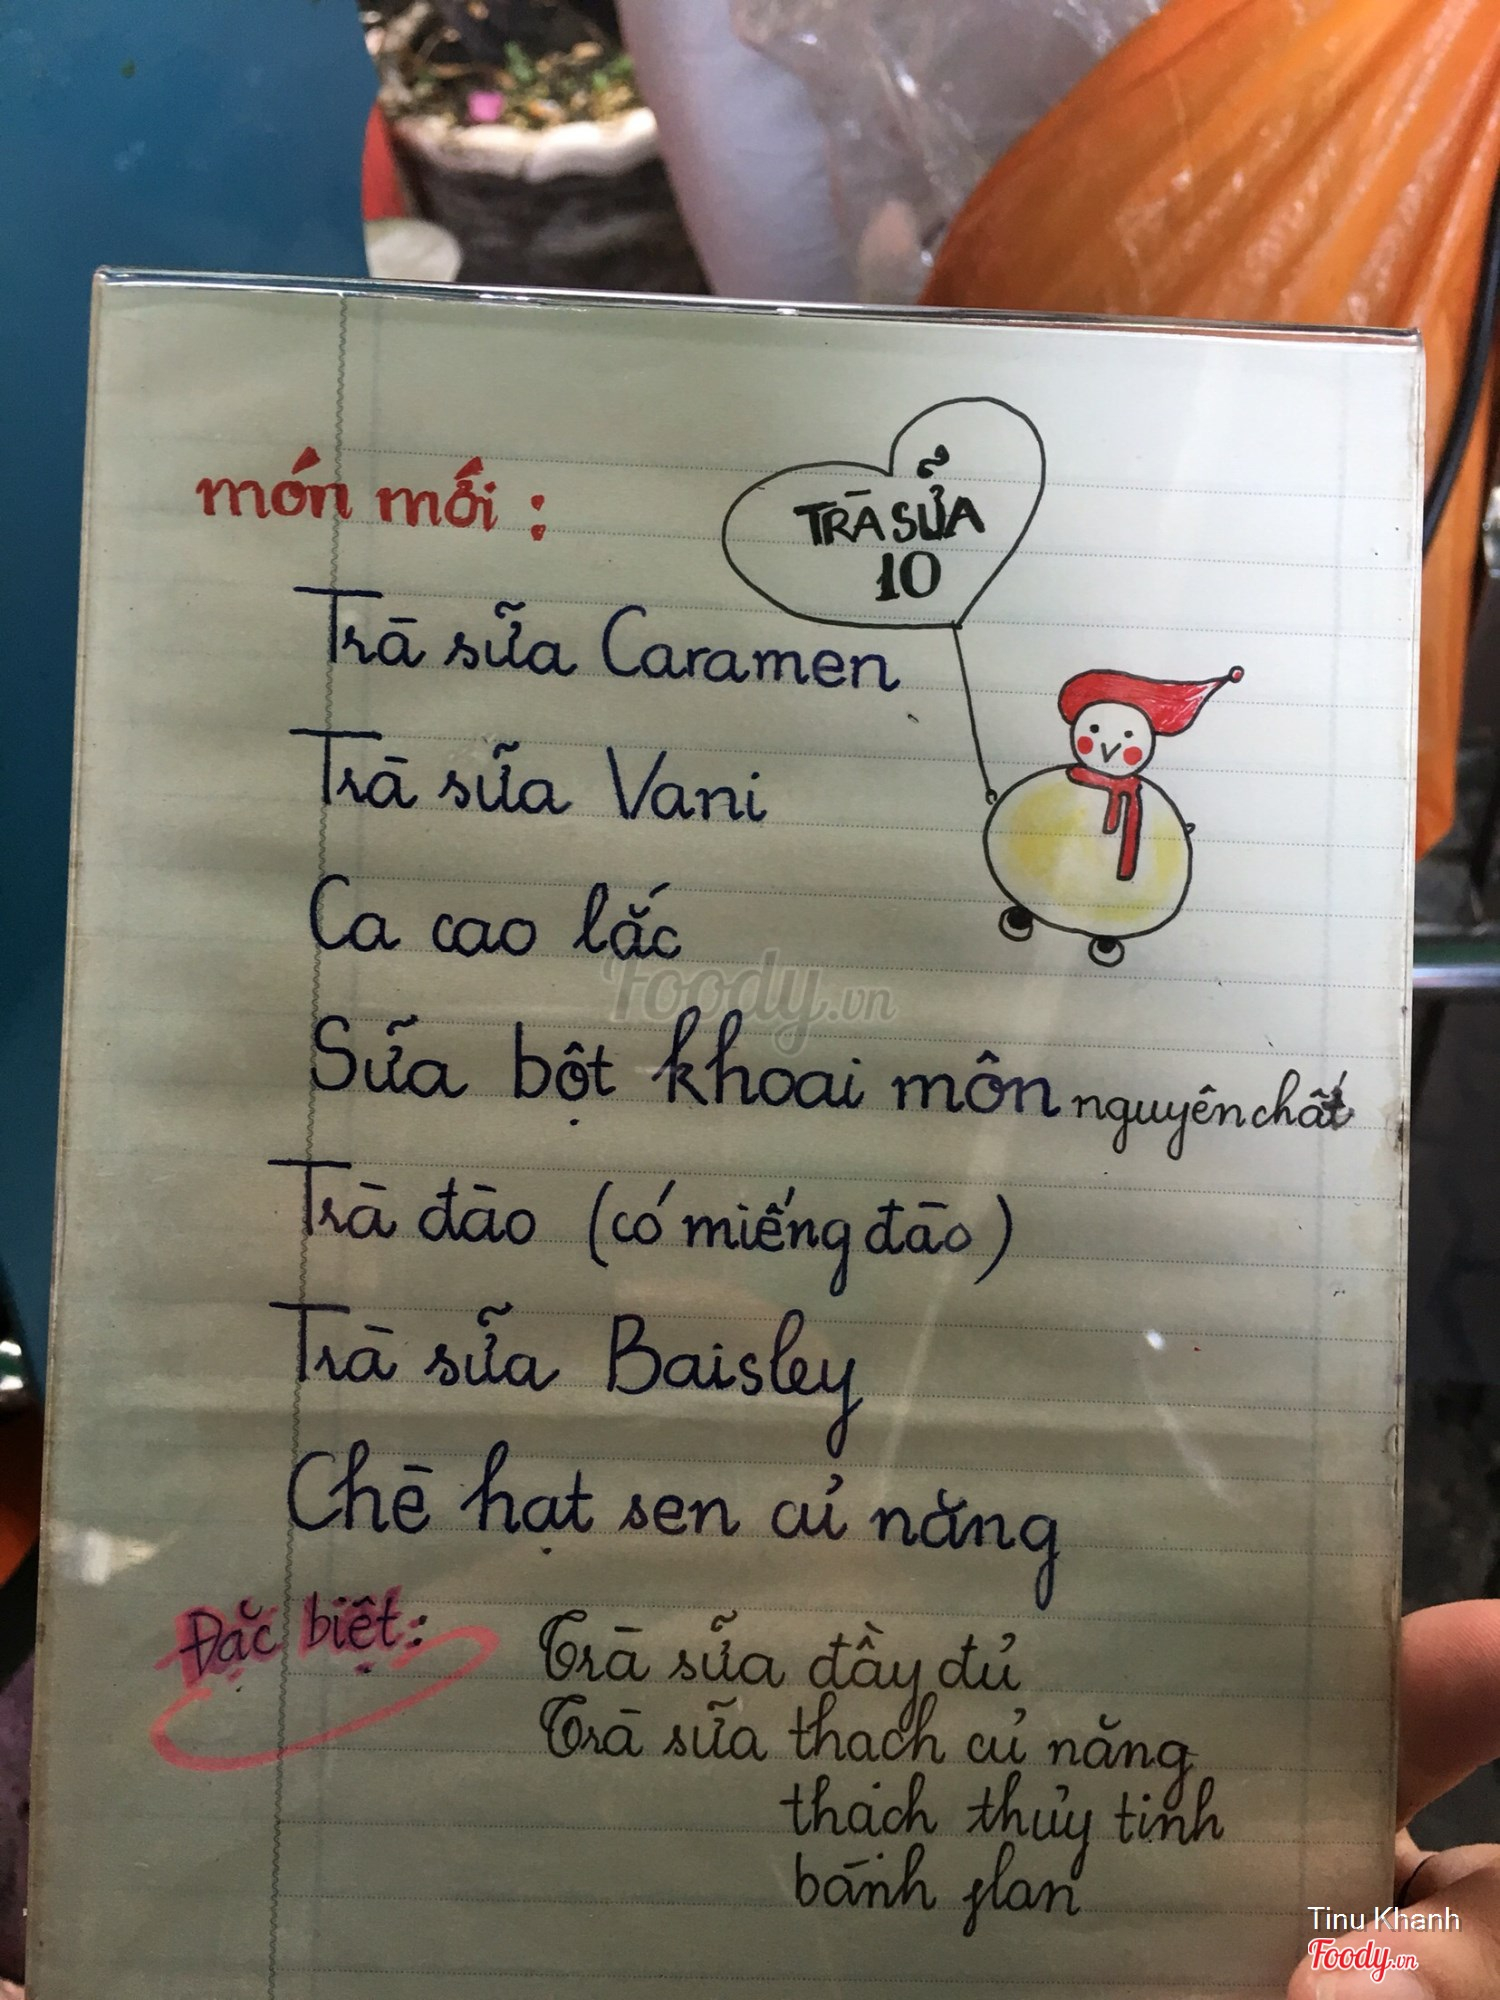 món mới :
TRÀ SỮA
10
Trà sữa Caramen
Trà sữa Vani
Ca cao lắc
Foody.vn
Sữa bột khoai môn nguyên chất
Trà đào (có miếng đào)
Trà sữa Baisley
Chè hạt sen củ năng
Đặc biệt: Trà sữa đầy đủ
Trà sữa thạch củ năng
thạch thủy tinh
bánh flan
Tinu Khanh
Foody.vn